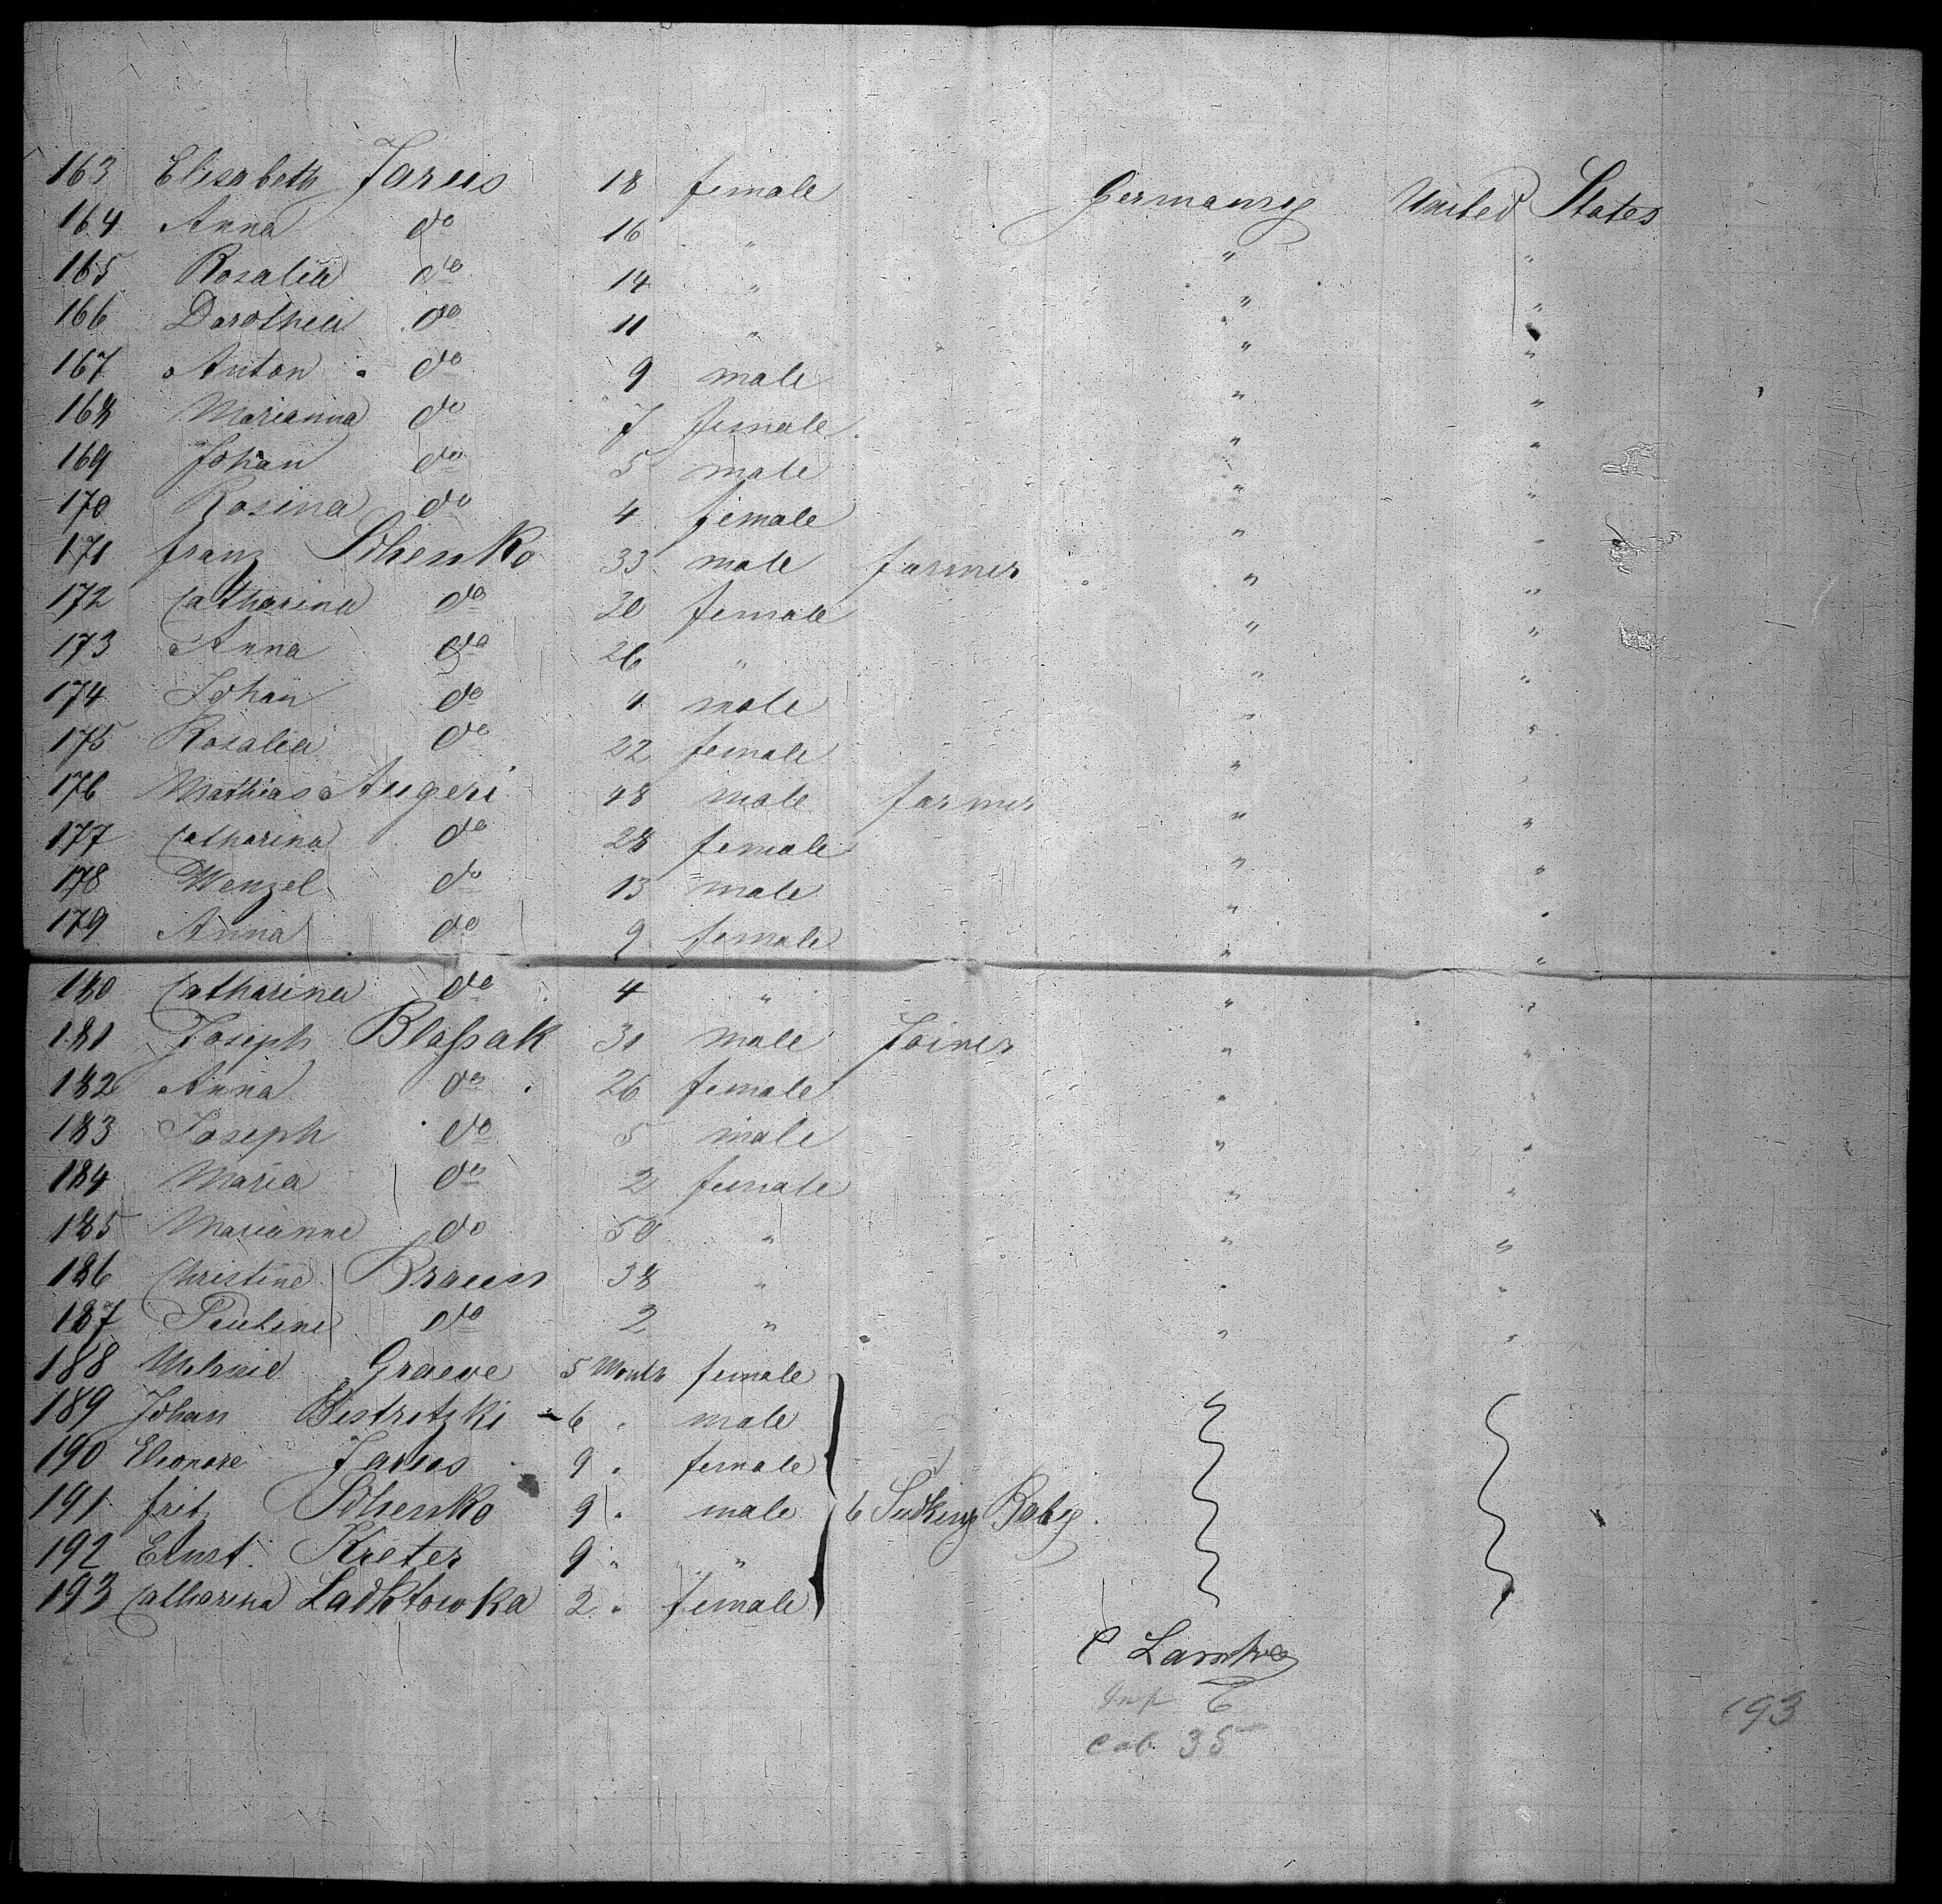 163 Elisabeth Jarus 18 female Germany United States
164 Anna do 16 " " "
165 Rosalia do 14 " " "
166 Dorothea do 11 " " "
167 Anton do 9 male " "
168 Marianna do 7 female " "
169 Johan do 5 male " "
170 Rosina do 4 female " "
171 franz Schenko 33 male farmer " "
172 Catharina do 20 female " "
173 Anna do 26 " " "
174 Johan do male " "
175 Rosalia do 22 female " "
176 Mathias Augeri 48 male farmer " "
177 Catharina do 28 female " "
178 Wenzel do 13 male " "
179 Anna do 9 female " "
180 Catharina do 4 " " "
181 Joseph Blaſsak 31 male Joiner " "
182 Anna do 26 female " "
183 Joseph do 5 male " "
184 Maria do 2 female " "
185 Marianne do 50 " " "
186 Christine Brauss 38 " " "
187 Pauline do 2 " " "
188 Graeve 5 Month female
189 Johan Bistritzki 6 " male
190 Eleonore Jarus 9 " female
191 frit Schenko 9 " male 6 Sucking Baby
192 Ernst Kreter 9 " "
193 Catharina Ladktowka 2 " female
C
Inf 6
Cab 35
193